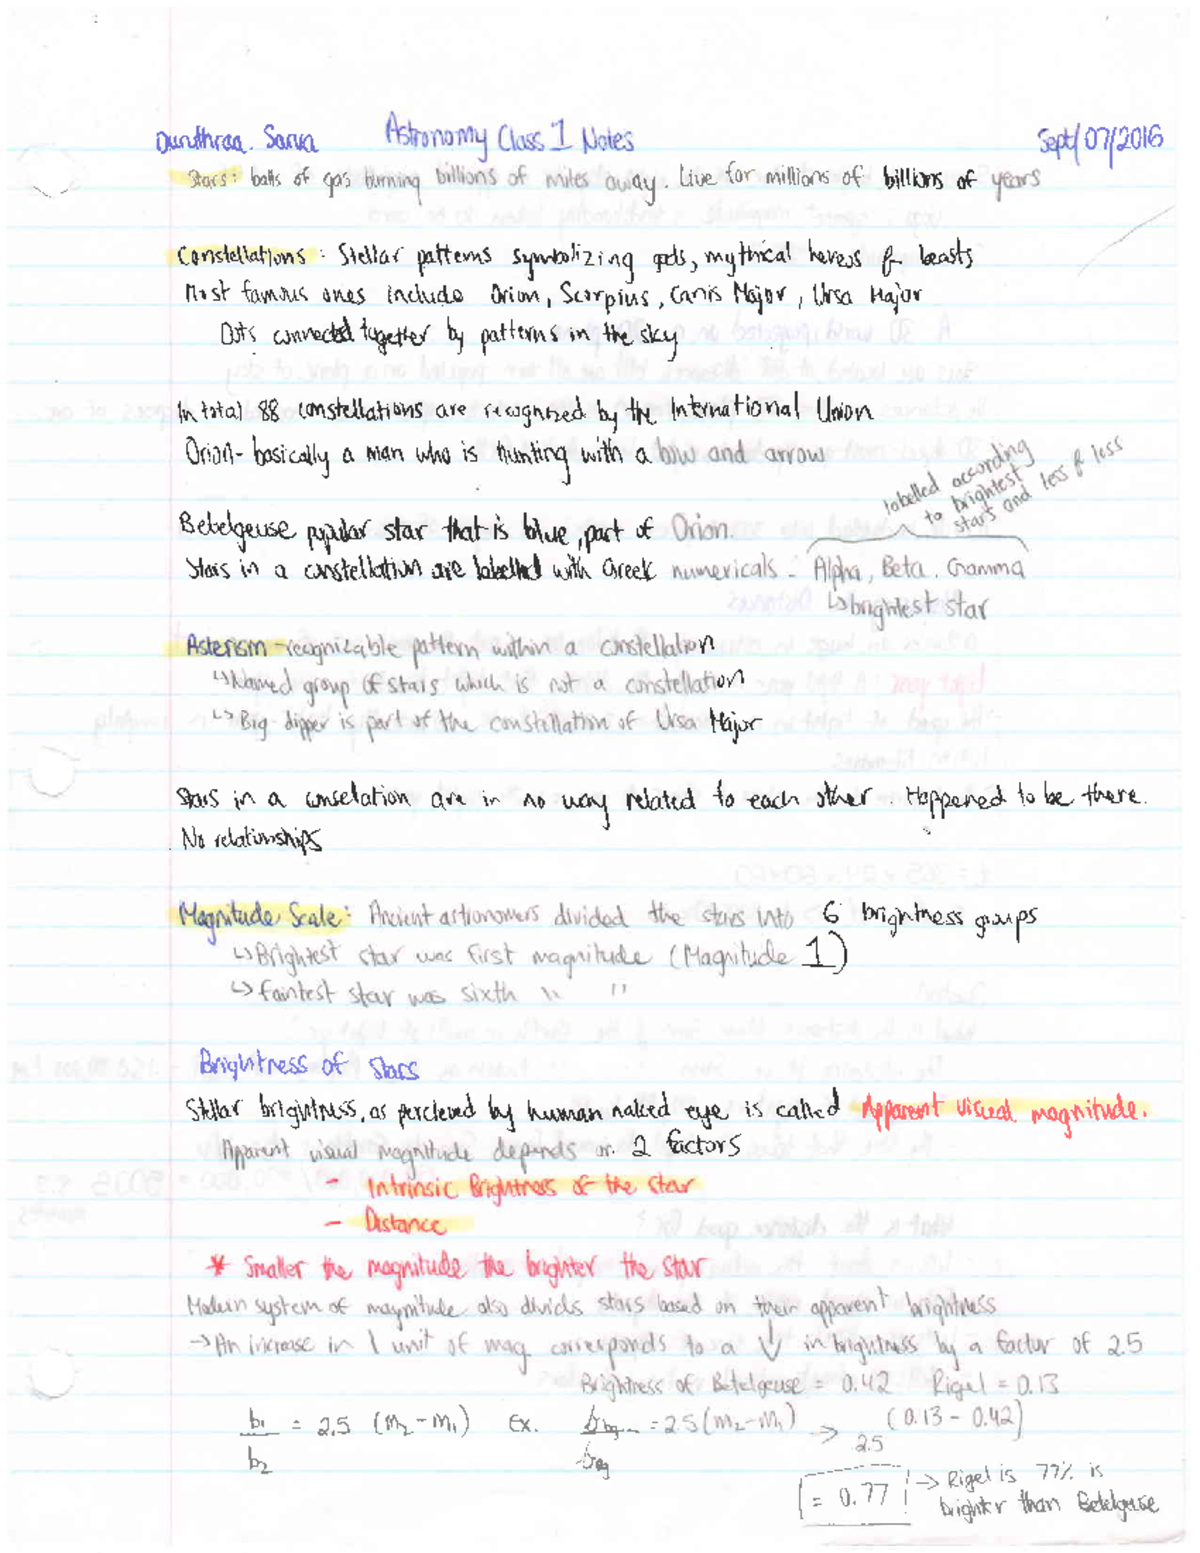 Duruthraa. Sarva Astronomy Class 1 Notes Sept/07/2016
Stars: balls of gas burning billions of miles away. Live for millions of billions of years
Constellations: Stellar patterns symbolizing gods, mythical heroes & beasts
Most famous ones include Orion, Scorpius, Canis Major, Ursa Major
Dots connected together by patterns in the sky
In total 88 constellations are recognized by the International Union
Orion- basically a man who is hunting with a bow and arrow
labelled according
to brightest
stars and less & less
Betelgeuse popular star that is blue, part of Orion.
Stars in a constellation are labelled with Greek numericals - Alpha, Beta, Gamma
↳brightest star
Asterism -recognizable pattern within a constellation
↳Named group of stars which is not a constellation
↳Big dipper is part of the constellation of Ursa Major
Stars in a conselation are in no way related to each other. Happened to be there.
No relationships
Magnitude Scale: Ancient astronomers divided the stars into 6 brightness groups
↳Brightest star was first magnitude (Magnitude 1)
↳faintest star was sixth " "
Brightness of Stars
Stellar brightness, as percieved by human naked eye is called Apparent visual magnitude.
Apparent visual magnitude depends on 2 factors
- Intrinsic Brightness of the star
- Distance
* Smaller the magnitude the brighter the star
Modern system of magnitude also divids stars based on their apparent brightness
→An increase in 1 unit of mag corresponds to a ↓ in brightness by a factor of 2.5
Brightness of Betelgeuse = 0.42 Rigel = 0.13
b1/b2 = 2.5 (m2-m1) Ex. = 2.5(m2-m1) → 2.5 (0.13-0.42)
= 0.77 → Rigel is 77% is
brighter than Betelgeuse